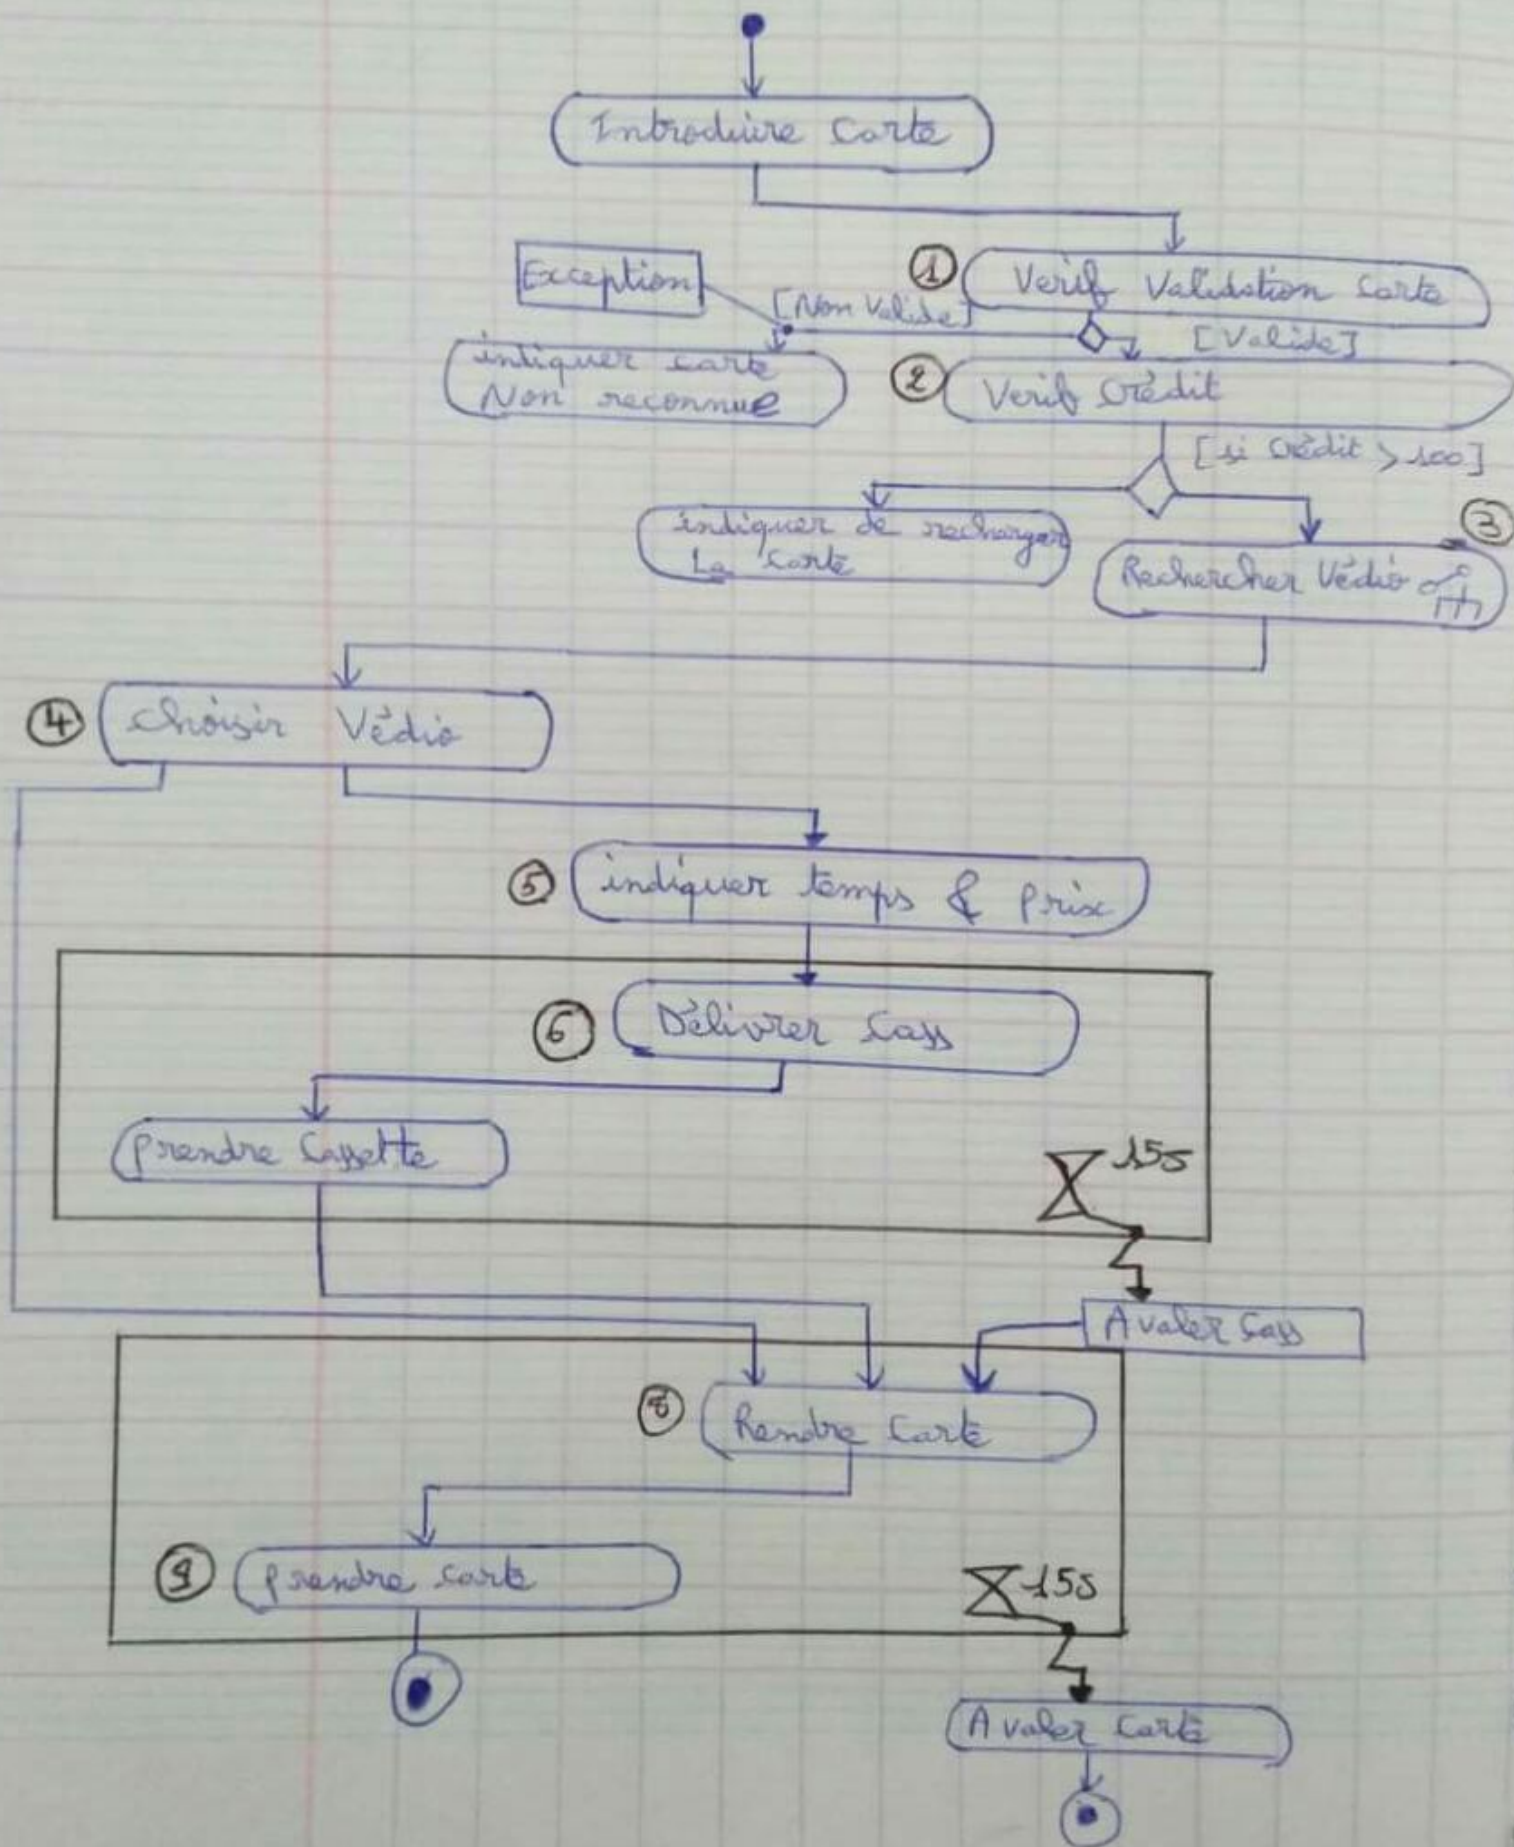 Introduire Carte
Exception
① Verif Validation Carte
[Non Valide]
[Valide]
intiquer carte
Non reconnue
② Verif Crédit
[si Crédit > 100]
indiquer de recharger
La Carte
③
Rechercher Védio
④ Choisir Védio
⑤ indiquer temps & prix
⑥ Délivrer Cass
prendre Cassette
15s
Avaler Cass
⑧ Rendre Carte
⑨ prendre carte
15s
Avaler Carte